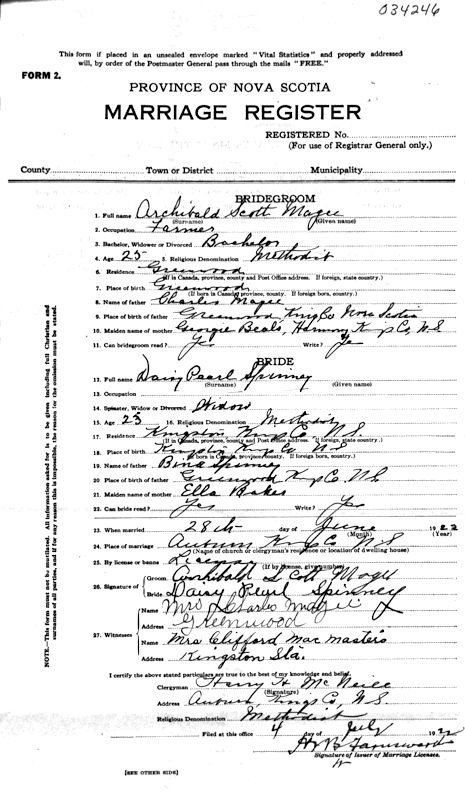 034246
This form if placed in an unsealed envelope marked "Vital Statistics" and properly addressed
will, by order of the Postmaster General pass through the mails "FREE."
FORM 2.
PROVINCE OF NOVA SCOTIA
MARRIAGE REGISTER
REGISTERED No.
(For use of Registrar General only.)
County Town or District Municipality
BRIDEGROOM
1. Full name Archibald Scott Magee
(Surname) (Given name)
2. Occupation Farmer
3. Bachelor, Widower or Divorced Bachelor
4. Age 25 5. Religious Denomination Methodist
6. Residence Greenwood
(If in Canada, province, county and Post Office address. If foreign, state country.)
7. Place of birth Greenwood
(If born in Canada, province, county. If foreign born, country.)
8. Name of father Charles Magee
9. Place of birth of father Greenwood Kings Co Nova Scotia
10. Maiden name of mother Georgie Beals, Harmony K Co, N.S
11. Can bridegroom read? Yes Write? Yes
BRIDE
12. Full name Daisy Pearl Spinney
(Surname) (Given name)
13. Occupation
14. Spinster, Widow or Divorced Widow
15. Age 23 16. Religious Denomination Methodist
17. Residence Kingston Kings Co N.S.
(If in Canada, province, county and Post Office address. If foreign, state country.)
18. Place of birth Kingston Kings Co N.S
(If born in Canada, province, county. If foreign born, country.)
19. Name of father Spinney
20. Place of birth of father Greenwood K Co, N.S
21. Maiden name of mother Ella Baker
22. Can bride read? Yes Write? Yes
23. When married 28th day of June 1922
(Month) (Year)
24. Place of marriage Auburn Kings Co N.S
(Name of church or clergyman's residence or location of dwelling house)
25. By license or banns License
(If by license, give number)
26. Signature of Groom Archibald Scott Magee
Bride Daisy Pearl Spinney
Name Mrs Charles Magee
Address Greenwood
27. Witnesses
Name Mrs Clifford Mac Masters
Address Kingston Sta.
I certify the above stated particulars are true to the best of my knowledge and belief.
Clergyman Harry H McNeill
(Signature)
Address Auburn, Kings Co, N.S
Religious Denomination Methodist
Filed at this office 4 day of July 1922
Signature of Issuer of Marriage Licenses.
[SEE OTHER SIDE]
NOTE.—This form must not be mutilated. All information asked for is to be given including full Christian and
surnames of all parties, and if for any reason this is impossible, the reason for the omission must be stated.